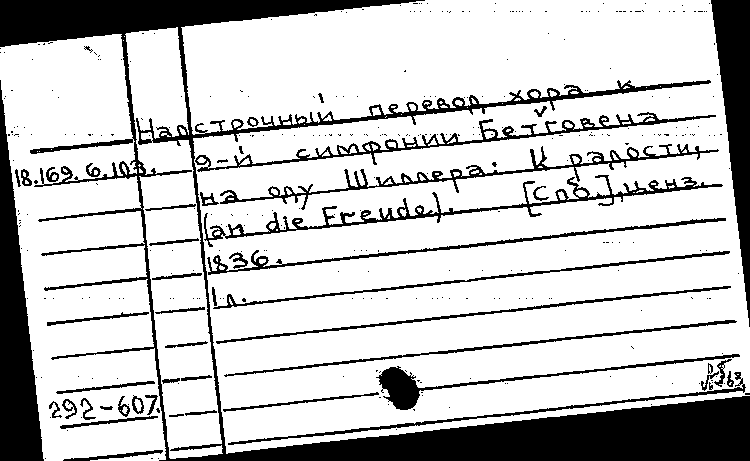 Надстрочный перевод хора к
18.169.6.103. 9-й симфонии Бетговена
на оду Шиллера: К радости,
(an die Freude). [Спб.], ценз.
1836.
1 л.
292-607.